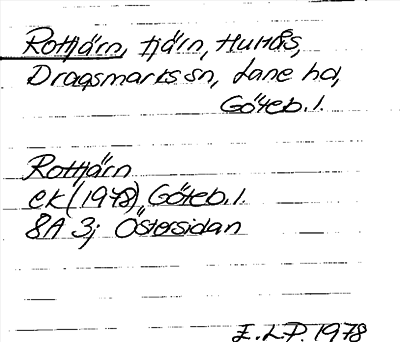 Rottjärn, tjärn, Huvås,
Dragsmarks sn, Lane hd,
Göteb. l.
Rottjärn
ek (1978), Göteb. l.
8A 3j Östersidan
E.L.P. 1978